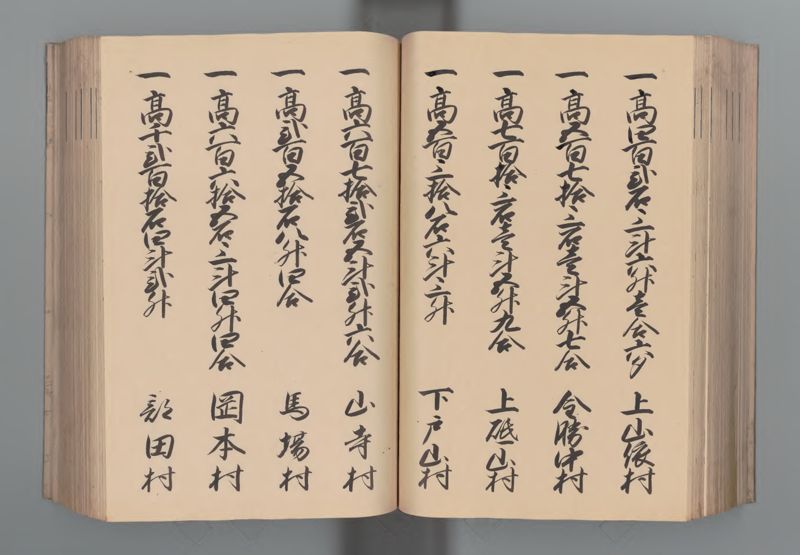 一高四百弐石三斗六升壱合六夕 上山依村
一高五百七拾三石壱斗五升七合 今勝中村
一高七百拾三石壱斗五升九合 上砥山村
一高五百三拾八石六斗三升 下戸山村
一高六百七拾弐石五斗弐升六合 山寺村
一高弐百五拾石八升四合 馬場村
一高六百六拾五石三斗四升四合 岡本村
一高千弐百拾石四斗弐升 部田村